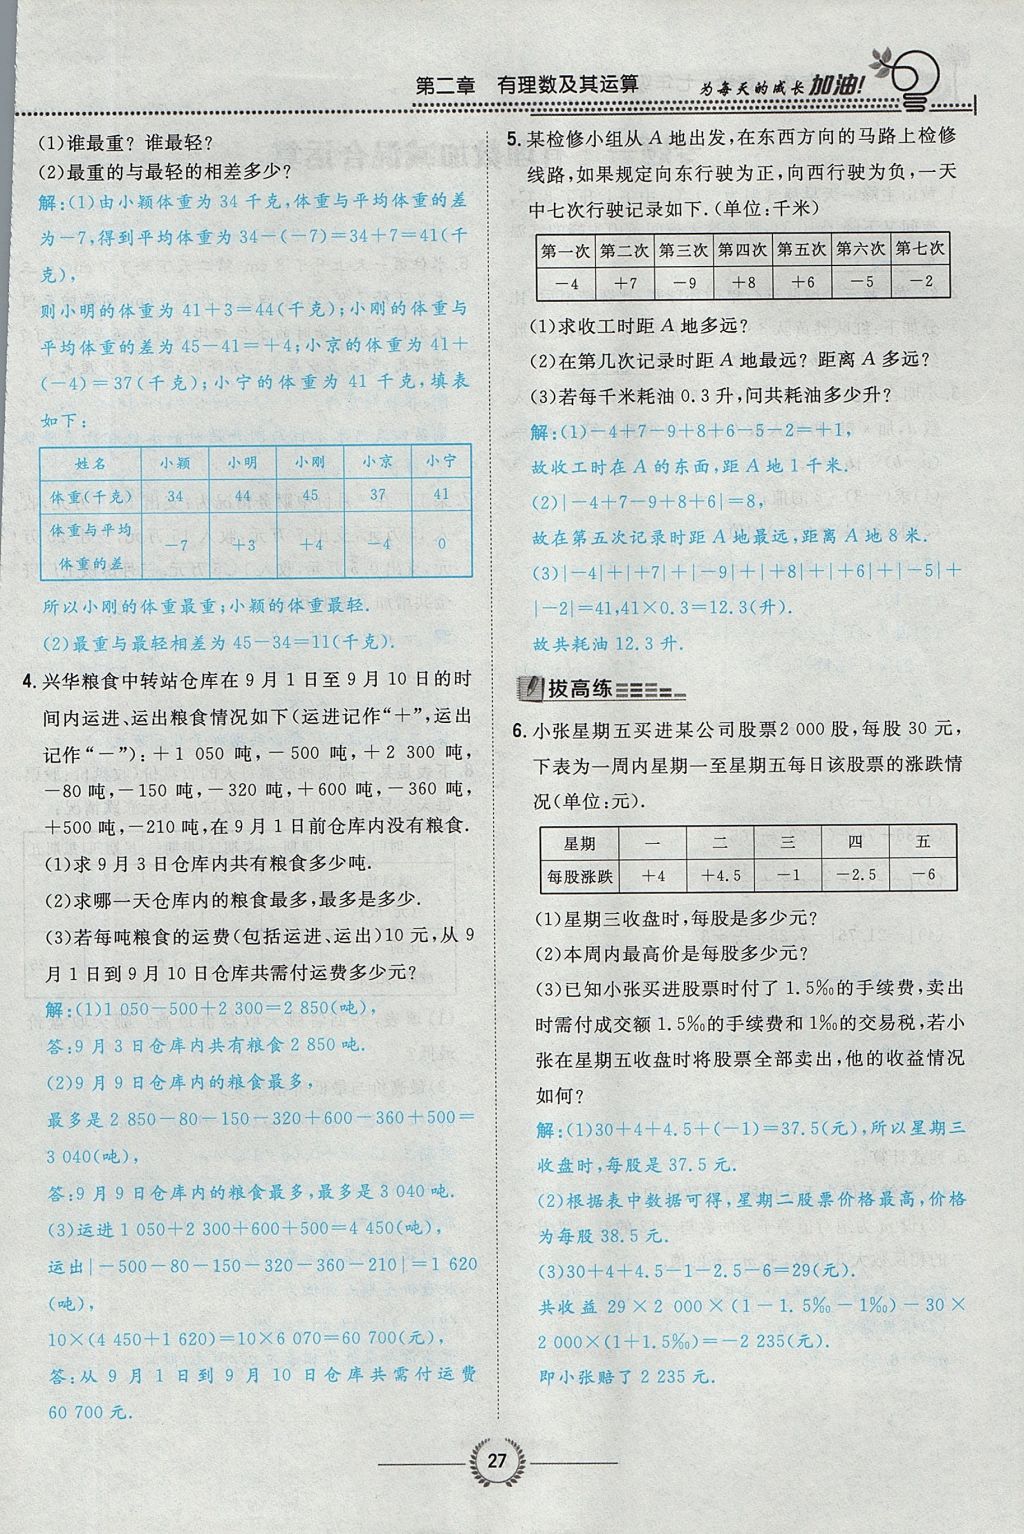 第二章　有理数及其运算
为每天的成长加油!
(1)谁最重？谁最轻？
(2)最重的与最轻的相差多少？
解:(1)由小颖体重为 34 千克,体重与平均体重的差
为－7,得到平均体重为 34－(－7)＝34＋7＝41(千
克),
则小明的体重为 41＋3＝44(千克);小刚的体重与
平均体重的差为 45－41＝＋4;小京的体重为 41＋
(－4)＝37(千克);小宁的体重为 41 千克,填表
如下:
姓名 小颖 小明 小刚 小京 小宁
体重(千克) 34 44 45 37 41
体重与平均
体重的差 －7 ＋3 ＋4 －4 0
所以小刚的体重最重;小颖的体重最轻.
(2)最重与最轻相差为 45－34＝11(千克).
4. 兴华粮食中转站仓库在 9 月 1 日至 9 月 10 日的时
间内运进、运出粮食情况如下(运进记作“＋”,运出
记作“－”):＋1 050 吨,－500 吨,＋2 300 吨,
－80 吨,－150 吨,－320 吨,＋600 吨,－360 吨,
＋500 吨,－210 吨,在 9 月 1 日前仓库内没有粮食.
(1)求 9 月 3 日仓库内共有粮食多少吨.
(2)求哪一天仓库内的粮食最多,最多是多少.
(3)若每吨粮食的运费(包括运进、运出)10 元,从 9
月 1 日到 9 月 10 日仓库共需付运费多少元?
解:(1)1 050－500＋2 300＝2 850(吨),
答:9 月 3 日仓库内共有粮食 2 850 吨.
(2)9 月 9 日仓库内的粮食最多,
最多是 2 850－80－150－320＋600－360＋500＝
3 040(吨),
答:9 月 9 日仓库内的粮食最多,最多是 3 040 吨.
(3)运进 1 050＋2 300＋600＋500＝4 450(吨),
运出|－500－80－150－320－360－210|＝1 620
(吨),
10×(4 450＋1 620)＝10×6 070＝60 700(元),
答:从 9 月 1 日到 9 月 10 日仓库共需付运费
60 700 元.
5. 某检修小组从 A 地出发,在东西方向的马路上检修
线路,如果规定向东行驶为正,向西行驶为负,一天
中七次行驶记录如下.(单位:千米)
第一次 第二次 第三次 第四次 第五次 第六次 第七次
－4 ＋7 －9 ＋8 ＋6 －5 －2
(1)求收工时距 A 地多远?
(2)在第几次记录时距 A 地最远? 距离 A 多远?
(3)若每千米耗油 0.3 升,问共耗油多少升?
解:(1)－4＋7－9＋8＋6－5－2＝＋1,
故收工时在 A 的东面,距 A 地 1 千米.
(2)|－4＋7－9＋8＋6|＝8,
故在第五次记录时距 A 地最远,距离 A 地 8 米.
(3)|－4|＋|＋7|＋|－9|＋|＋8|＋|＋6|＋|－5|＋
|－2|＝41,41×0.3＝12.3(升).
故共耗油 12.3 升.
拔高练
6. 小张星期五买进某公司股票2 000 股,每股 30 元,
下表为一周内星期一至星期五每日该股票的涨跌情
况(单位:元).
星期 一 二 三 四 五
每股涨跌 ＋4 ＋4.5 －1 －2.5 －6
(1)星期三收盘时,每股是多少元?
(2)本周内最高价是每股多少元?
(3)已知小张买进股票时付了 1.5‰的手续费,卖出
时需付成交额 1.5‰的手续费和 1‰的交易税,若小
张在星期五收盘时将股票全部卖出,他的收益情况
如何?
解:(1)30＋4＋4.5＋(－1)＝37.5(元),所以星期三
收盘时,每股是 37.5 元.
(2)根据表中数据可得,星期二股票价格最高,价格
为每股 38.5 元.
(3)30＋4＋4.5－1－2.5－6＝29(元).
共收益 29×2 000×(1－1.5‰－1‰)－30×
2 000×(1＋1.5‰)＝－2 235(元).
即小张赔了 2 235 元.
27